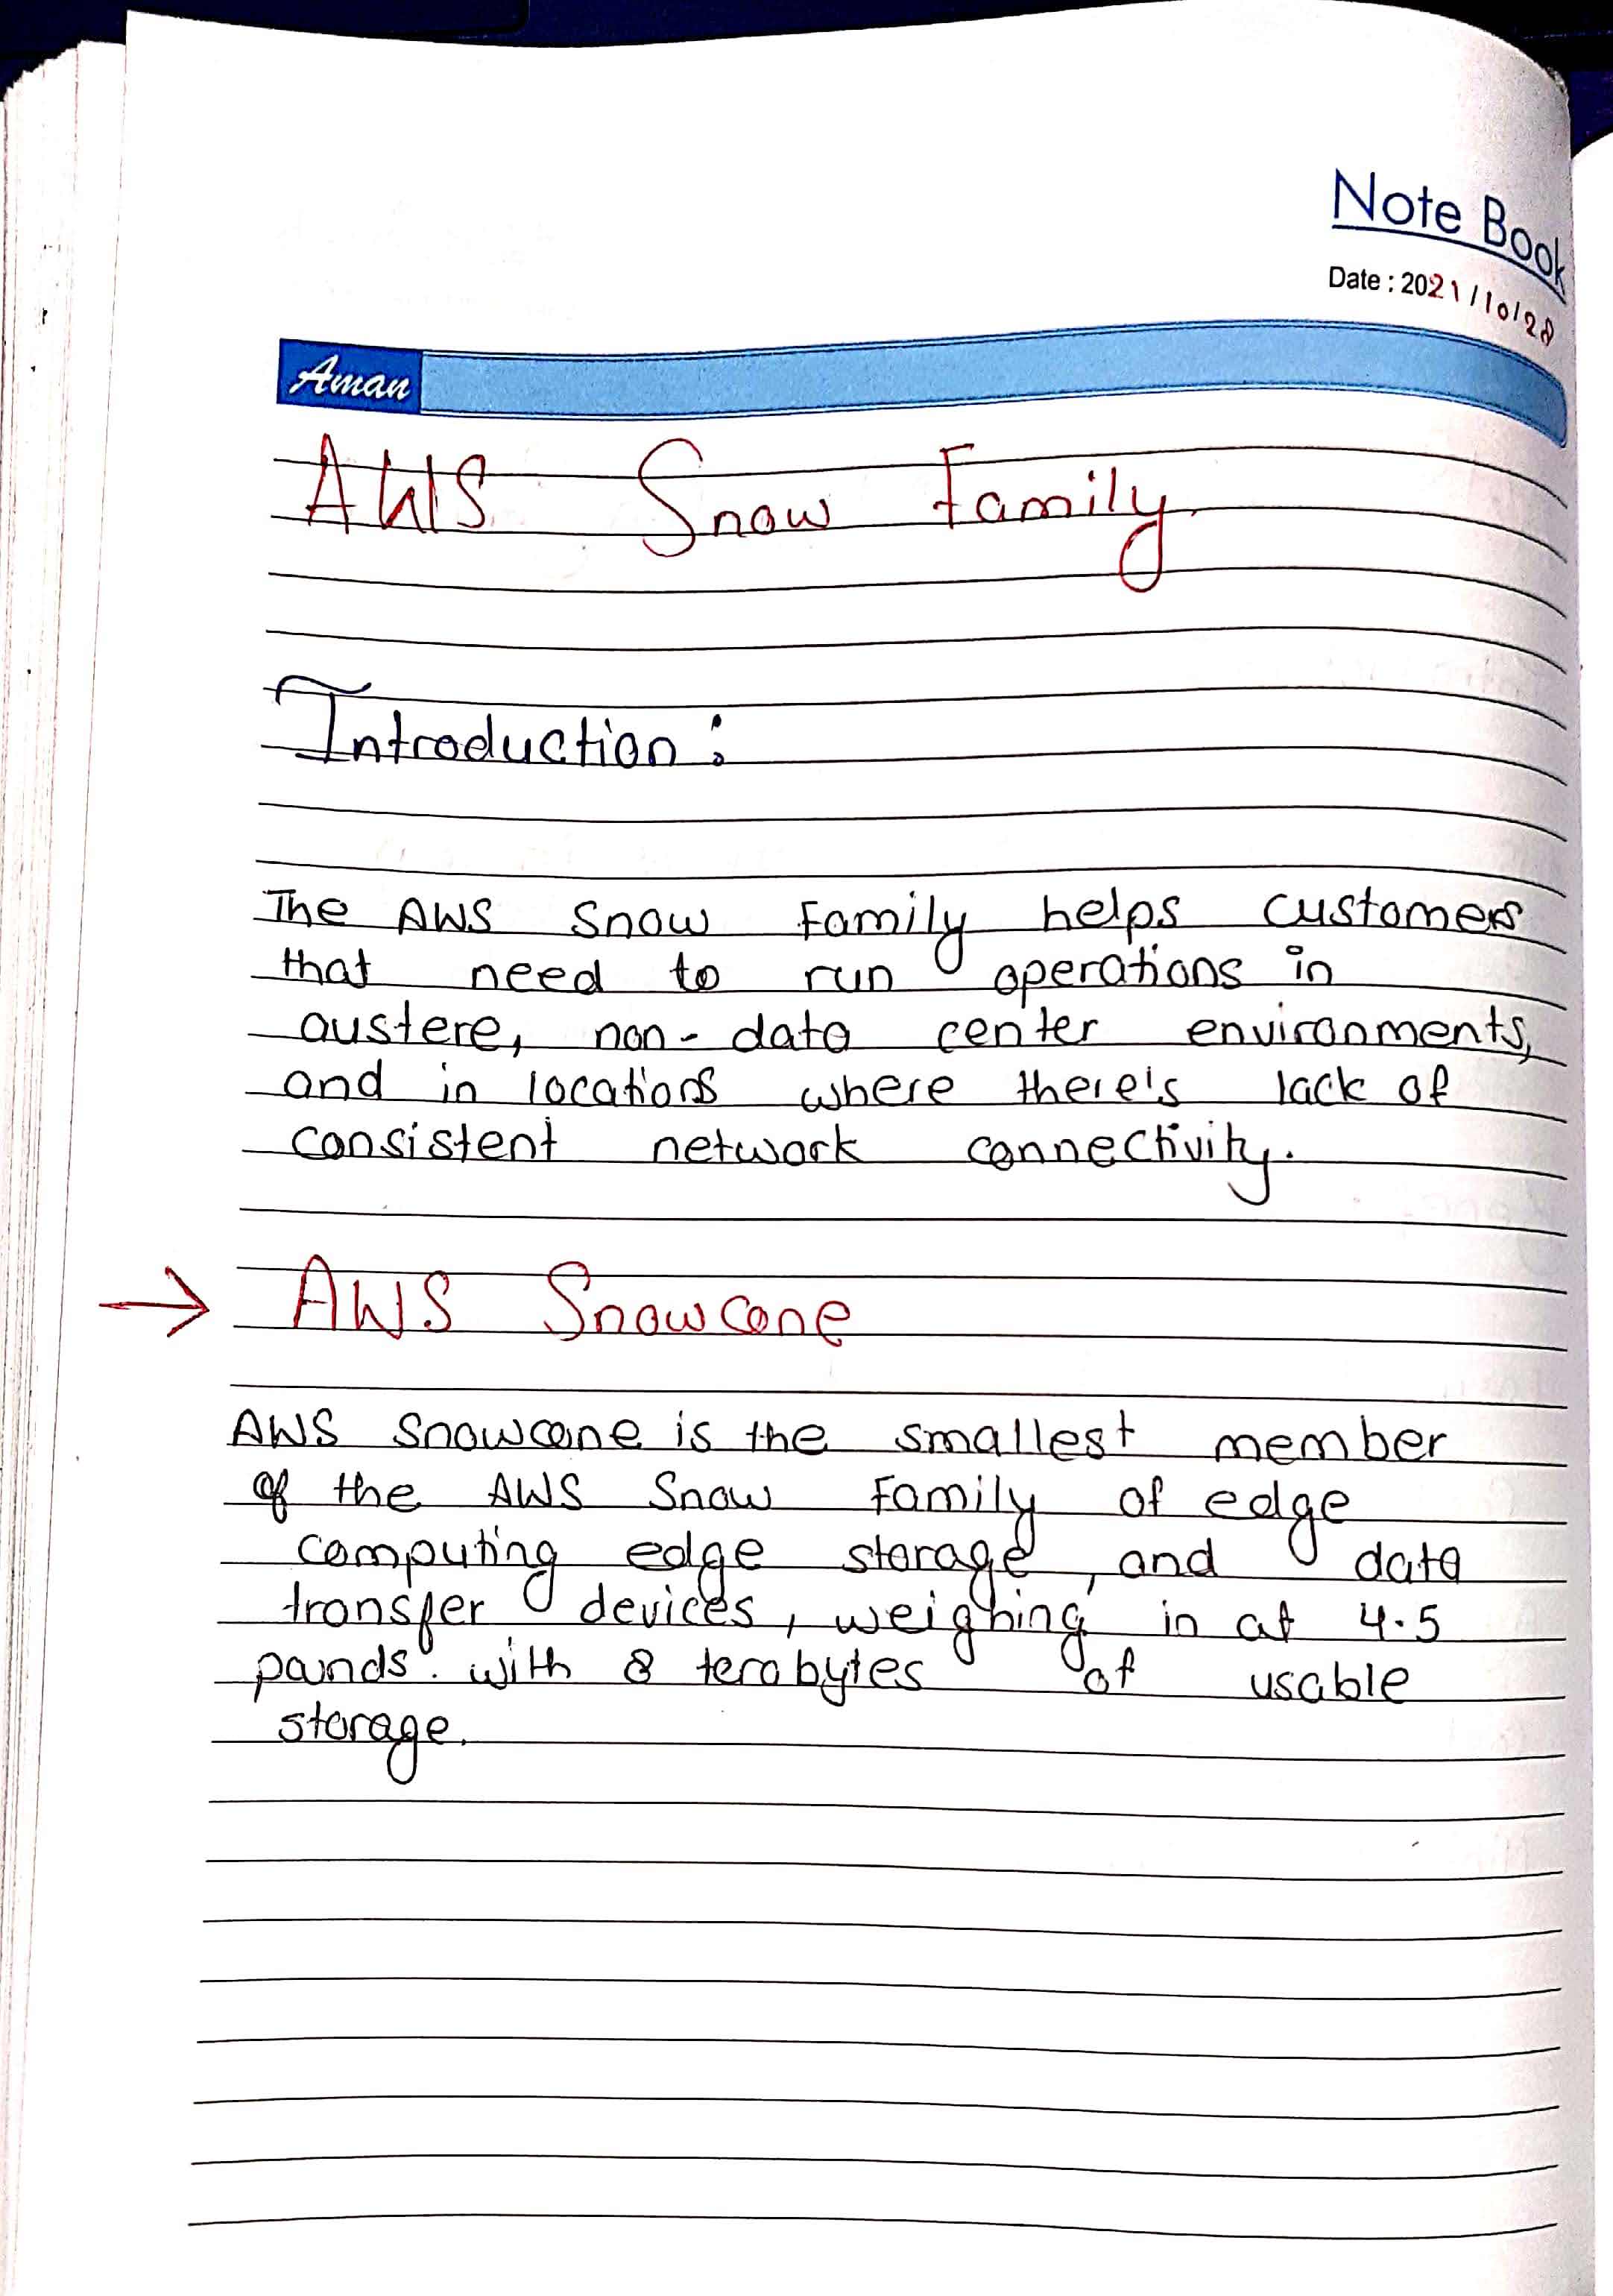 Note Book
Date : 2021/10/28
Aman
AWS Snow Family
Introduction:
The AWS Snow Family helps customers
that need to run operations in
austere, non-data center environments,
and in locations where there's lack of
consistent network connectivity.
→ AWS Snowcone
AWS Snowcone is the smallest member
of the AWS Snow Family of edge
computing edge storage, and data
transfer devices, weighing in at 4.5
pounds. with 8 terabytes of usable
storage.